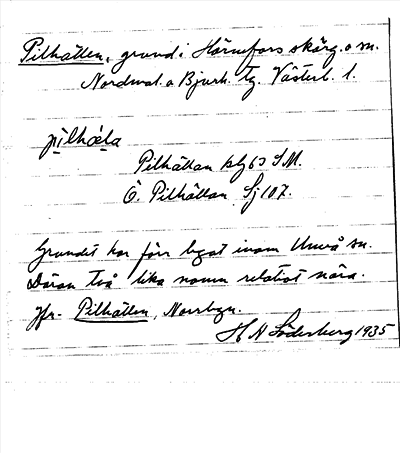 Pilhällen, grund i Hörnefors skärg. o sn.
Nordmal. o Bjurh. tg. Västerb. l.
pìlhæla
Pilhällan blg 63 S.M.
Ö. Pilhällan Sj 107.
Grundet har förr legat inom Umeå sn.
Däran två lika namn relativt nära.
Jfr. Pilhällen, Norrbyn.
H A Söderberg 1935